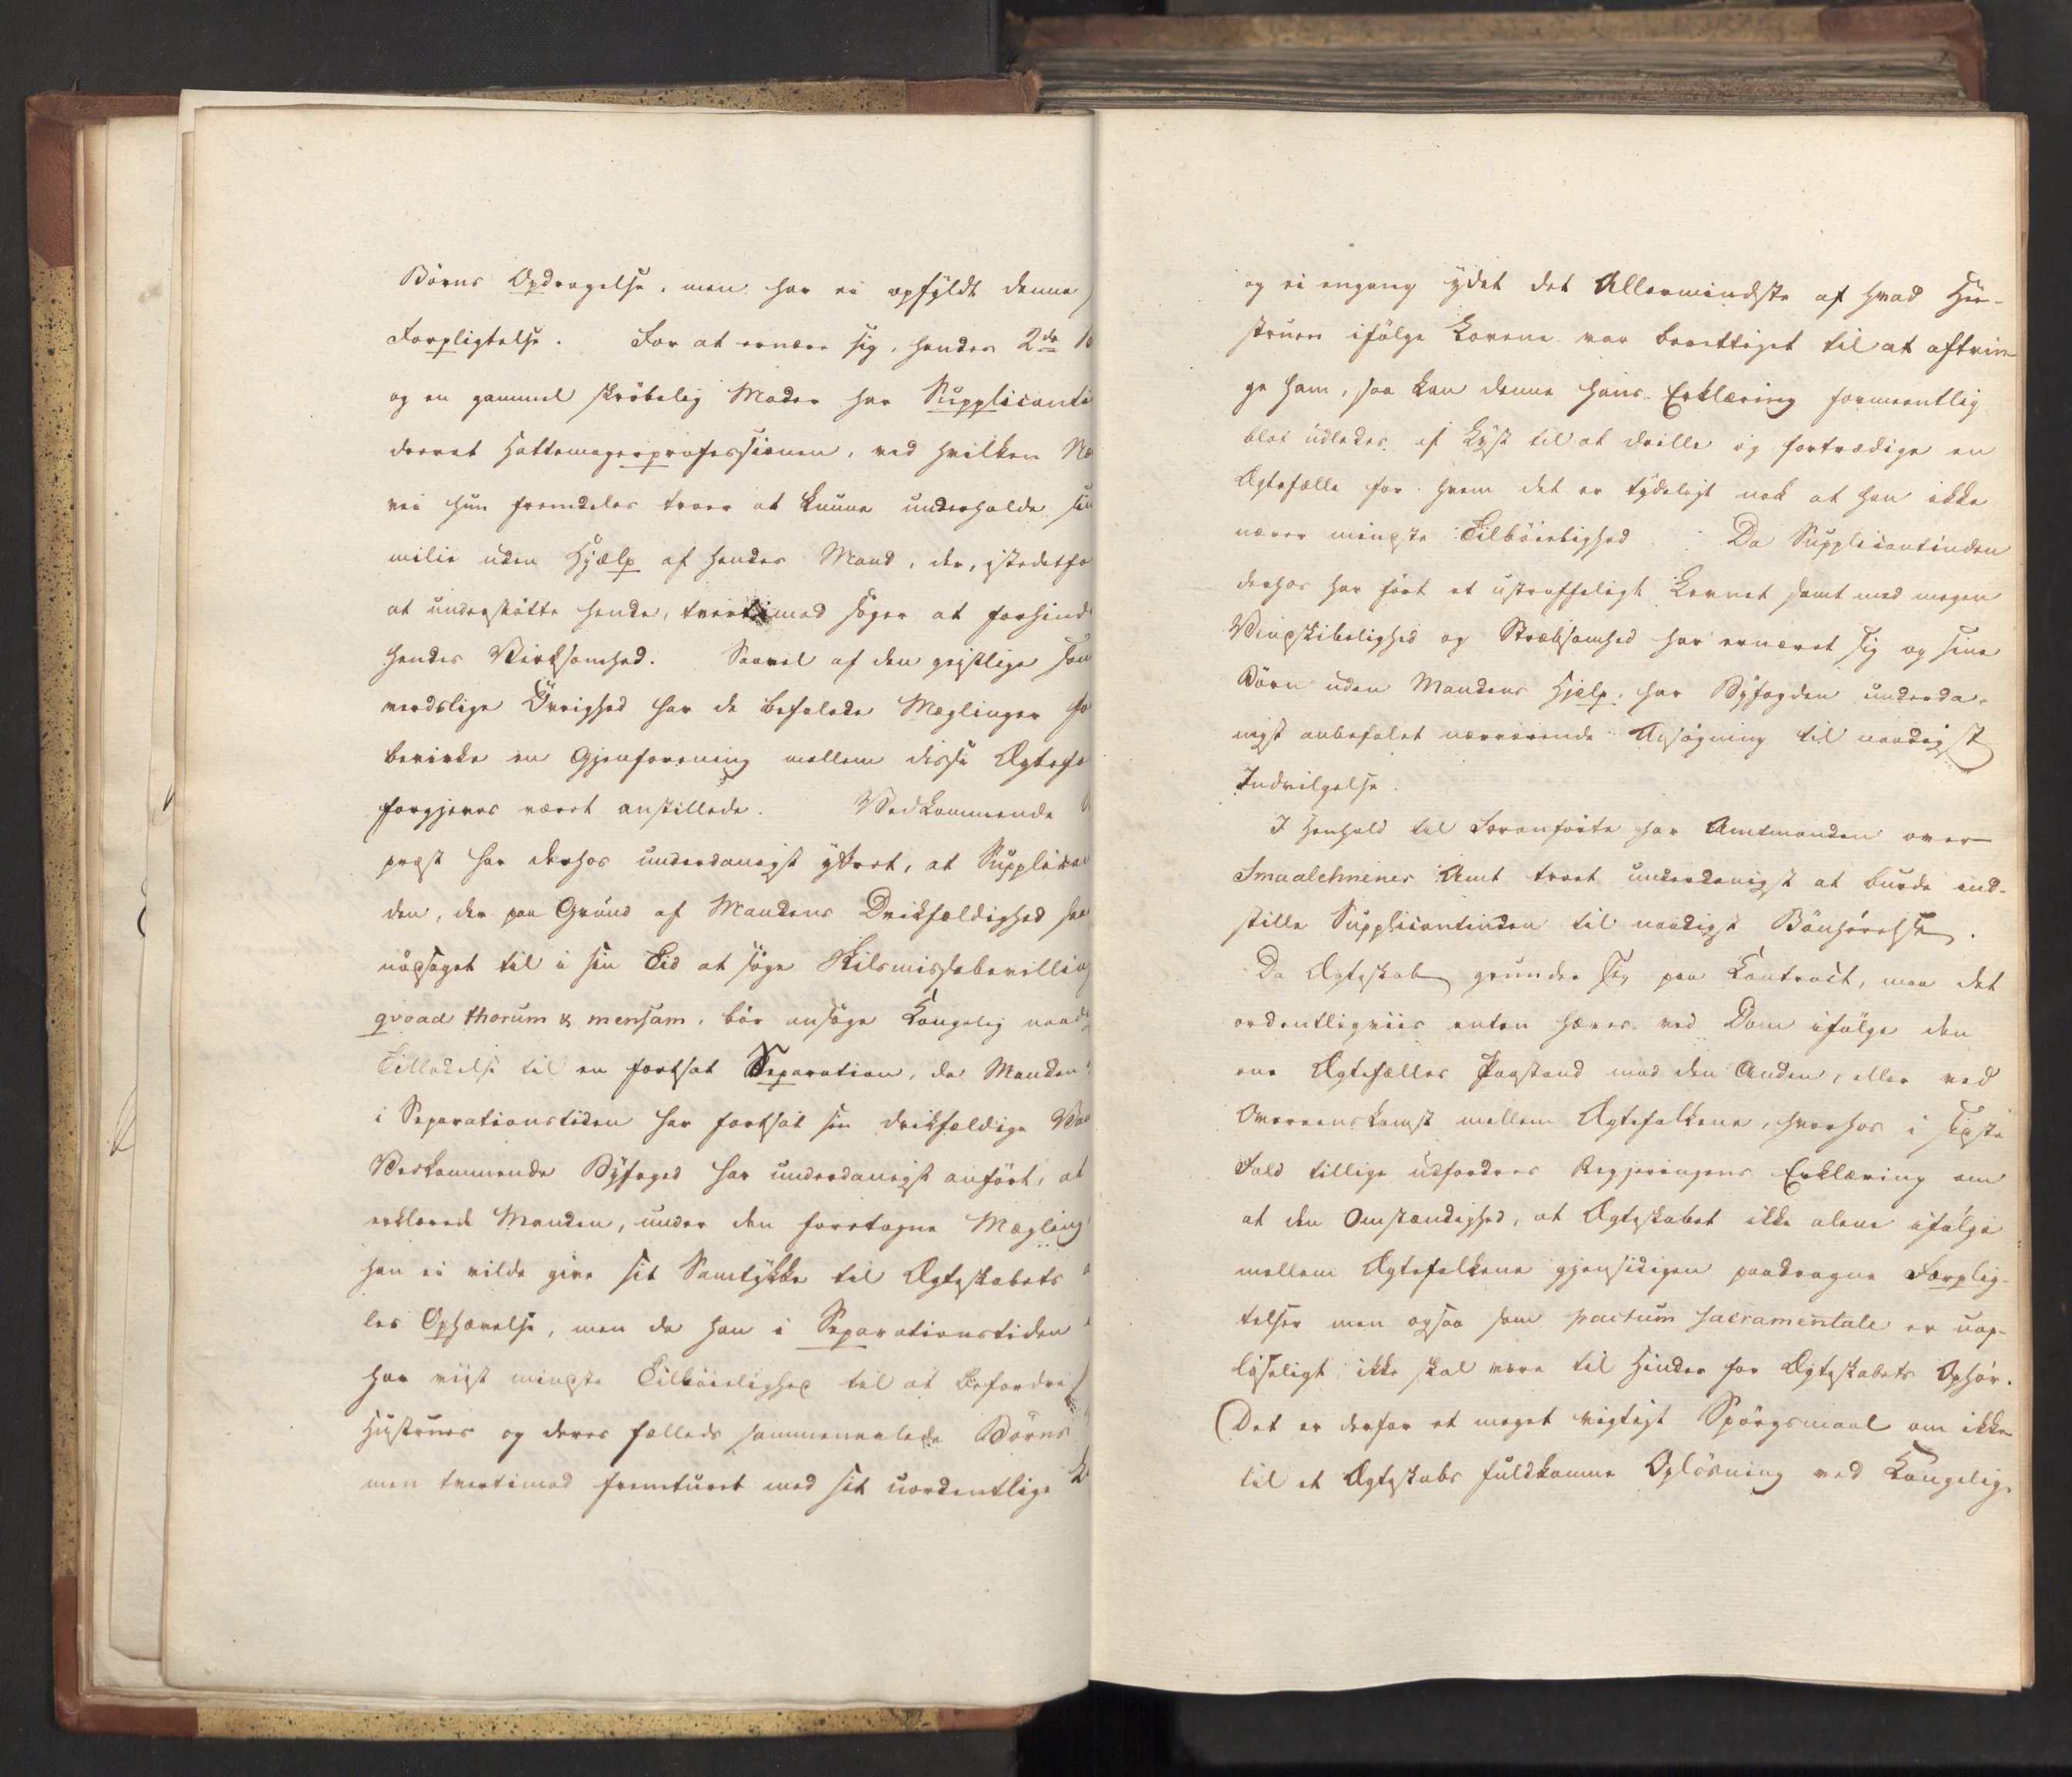 Börns Opdragelse, men har ei opfyldt denne
Forpligtelse. For at ernære sig, hendes 2de
og en gammel skröbelig Moder har Supplicanti
drevet Hattemagerprofessionen, ved hvilken Næ
vei hun fremdeles troer at kunne underholde sin
milie uden Hjælp af hendes Mand, der, istedetfo
at understötte hende, tvertimod söger at forhind
hendes Virksomhed. Saavel af den geistlige som
verdslige Övrighed har de befalede Mæglinger fo
bevirke en Gjenforening mellem disse Ægtefo
forgjeves været anstillede. Vedkommende
præst har derhos underdanigst yttret, at Supplican
den, der paa Grund af Mandens Drikfældighed saa
nödsaget til i sin Tid at söge Skilsmissebevilling
qvoad thorum & mensam, bör ansöge Kongelig naad
Tilladelse til en fortsat Separation, da Manden
i Separationstiden har fortsat sin drikfældige Van
Vedkommende Byfoged har underdanigst anfört, at
erklærede Manden, under den foretagne Mægling
han ei vilde give sit Samtykke til Ægteskabets
les Ophævelse, men da han i Separationstiden
har viist mindste Tilböielighed til at befordre
Hustrues og deres fælleds sammenavlede Börns
men tvertimod fremturet med sit uordentlige
og ei engang ydet det Allermindste af hvad Hu-
struen ifölge Lovene var berettiget til at aftvin-
ge ham, saa kan denne hans Erklæring formeentlig
blot udledes af Lyst til at drille og fortrædige en
Ægtefælle for hvem det er tydeligt nok at han ikke
nærer mindste Tilböielighed. Da Supplicantinden
derhos har fört et ustraffeligt Levnet samt med megen
Vindskibelighed og Stræbsomhed har ernæret sig og sine
Börn uden Mandens Hjelp, har Byfogden underda-
nigst anbefalet nærværende Ansögning til naadigst
Indvilgelse.
I Henhold til Foranförte har Amtmanden over
Smaalehnenes Amt troet underdanigst at burde ind-
stille Supplicantinden til naadigst Bönhörelse.
Da Ægteskab grunder sig paa Contract, maa det
ordentligviis enten hæves ved Dom ifölge den
ene Ægtefælles Paastand mod den Anden, eller ved
Overeenskomst mellem Ægtefolkene, hvorhos i sidste
Fald tillige udfordres Regjeringens Erklæring om
at den Omstændighed, at Ægteskabet ikke alene ifölge
mellem Ægtefolkene gjensidigen paadragne Forplig-
telser men ogsaa som pactum sacramentale er uop-
löseligt ikke skal være til Hinder for Ægteskabets Ophör.
Det er derfor et meget vigtigt Spörgsmaal om ikke
til et Ægteskabs fuldkomne Oplösning ved Kongelig